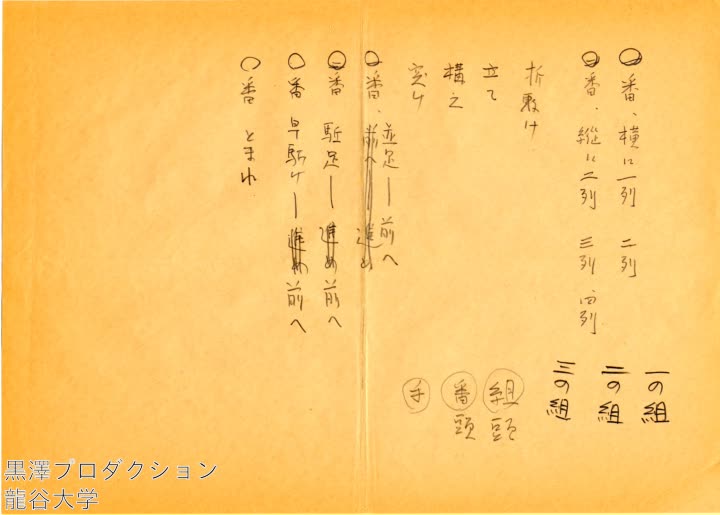 〇番、横に一列 二列
〇番、縦に二列 三列 四列
折敷け
立て
構え
突け
並足ー前へ
〇番、前へー進め
〇番 駈足ー進め前へ
〇番 早駈けー進め前へ
〇番 とまれ
一の組
二の組
三の組
組頭
番頭
手
黒澤プロダクション
龍谷大学